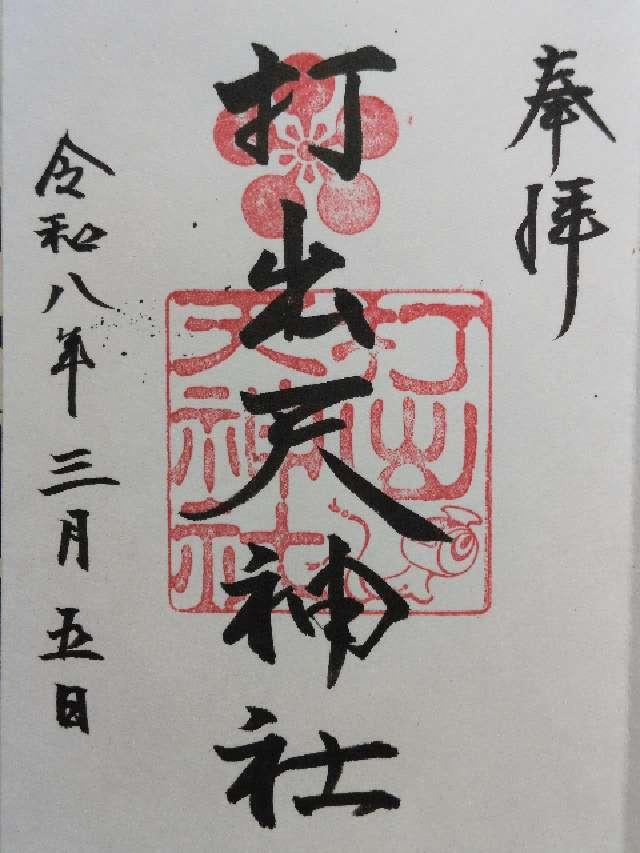 奉拝
打出天神社
打出
天神社
令和八年三月五日